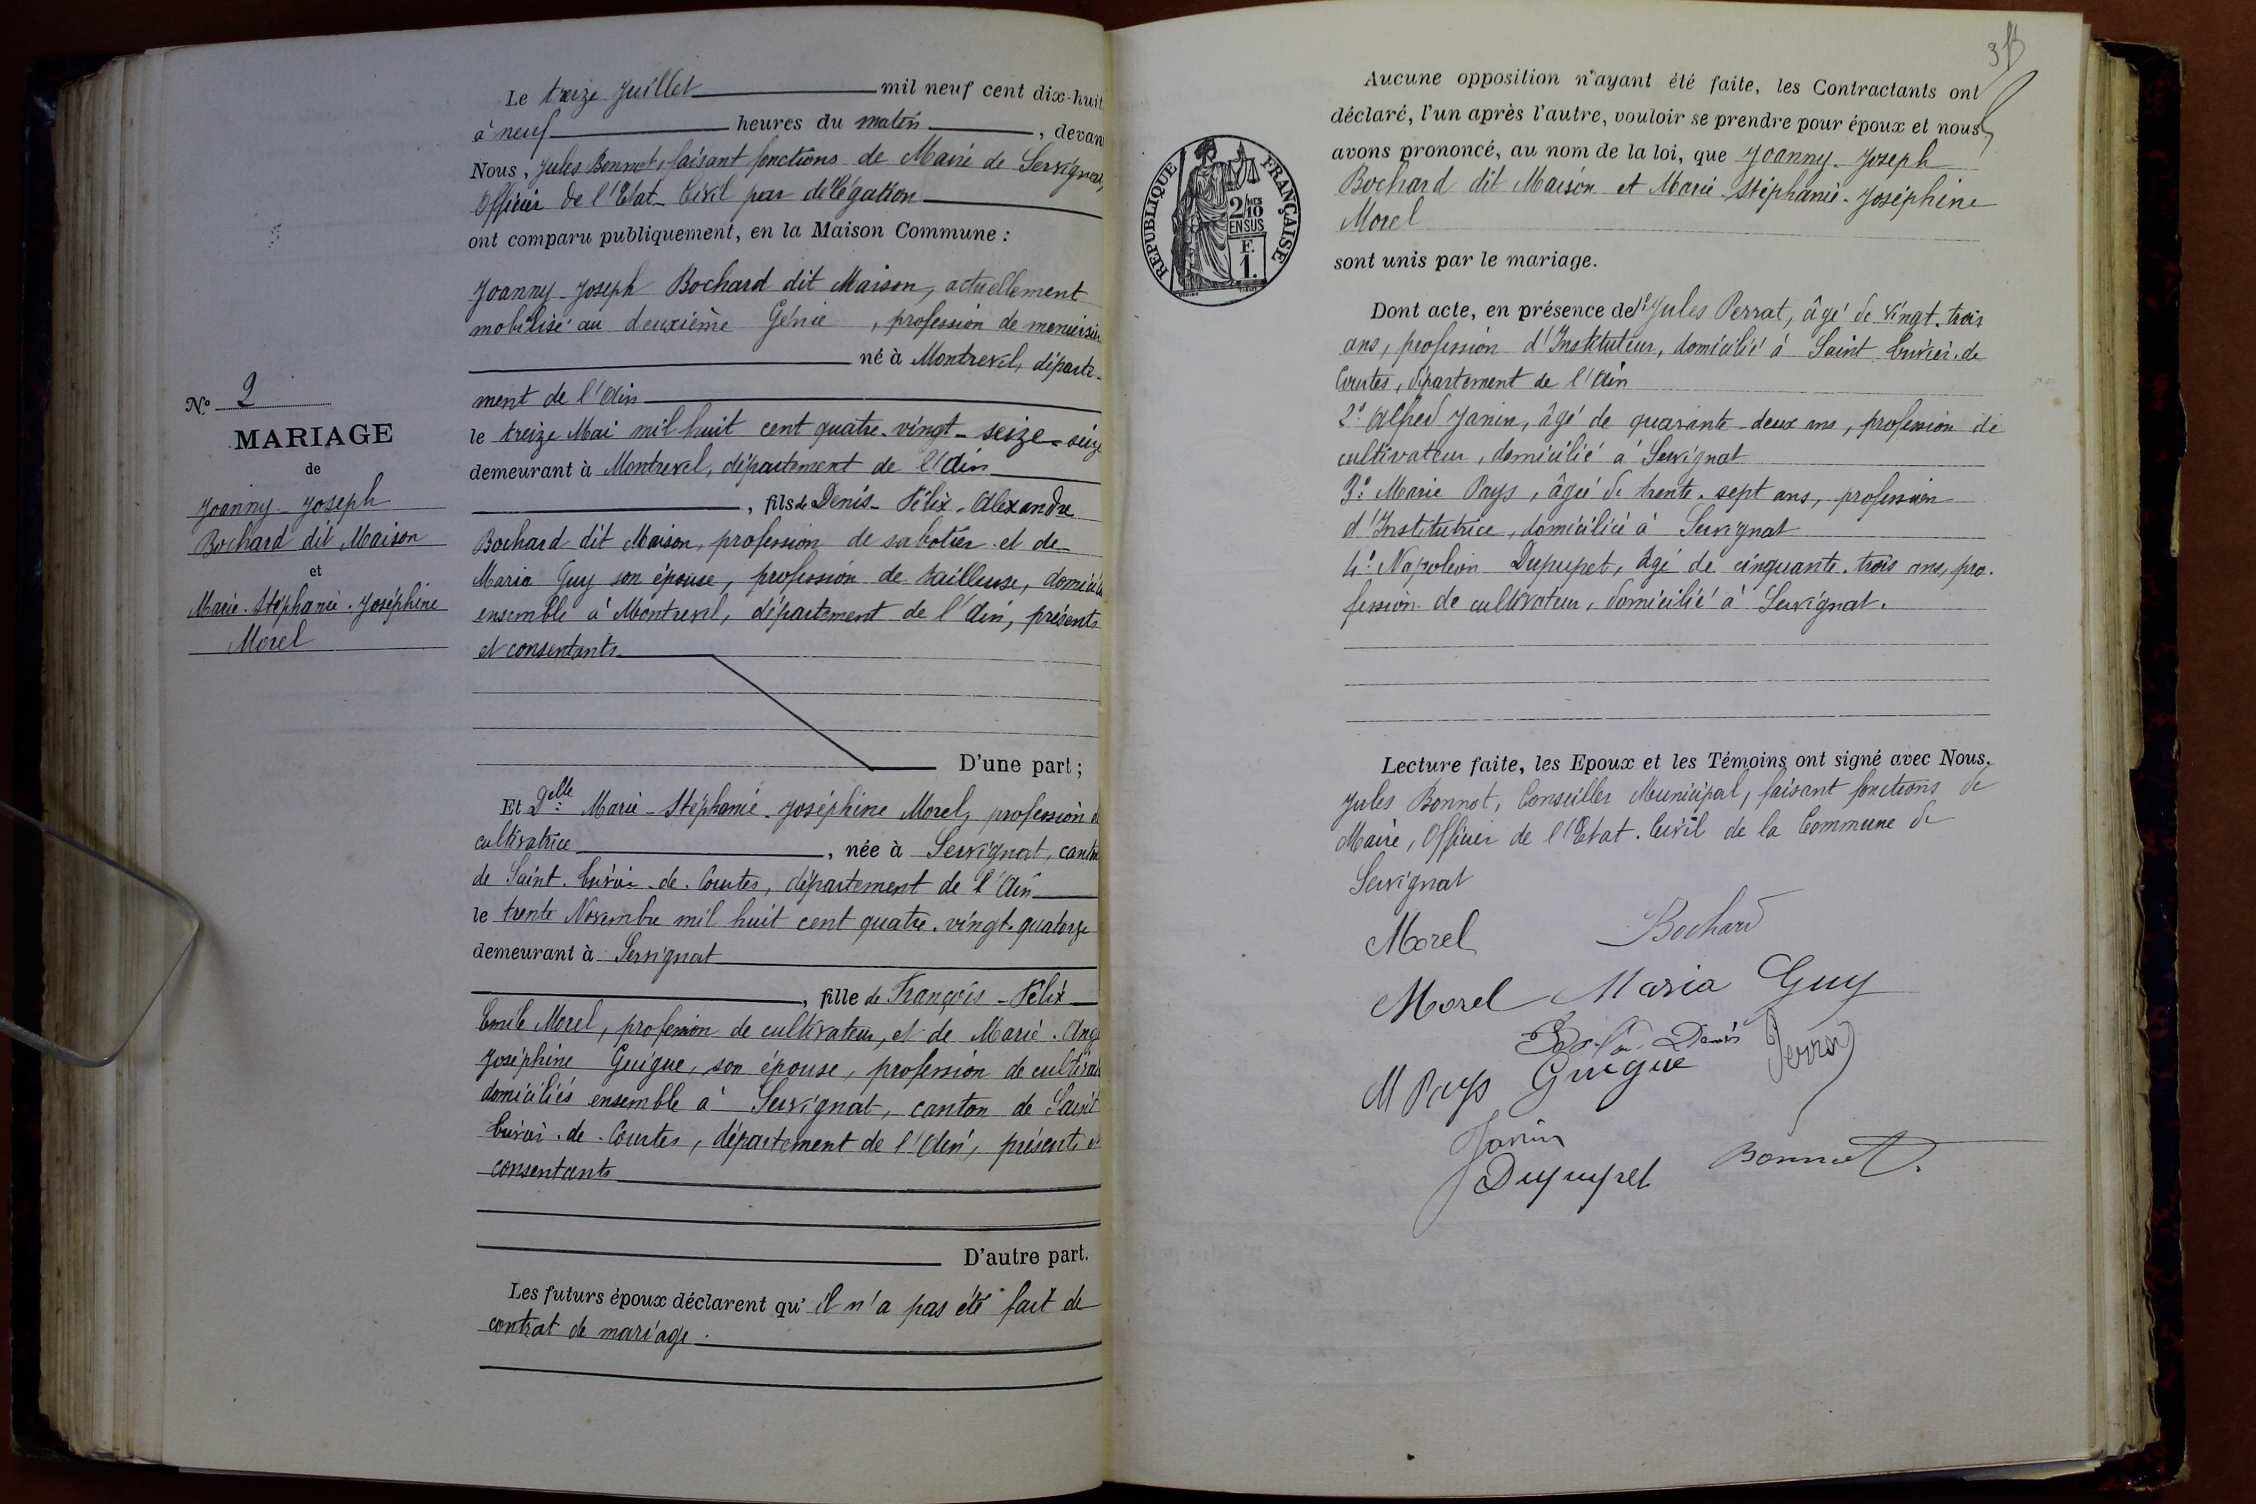 N° 2
MARIAGE
de
Joanny-Joseph
Bochard dit Maison
et
Marie-Stéphanie-Joséphine
Morel
Le treize Juillet mil neuf cent dix-huit
à neuf heures du matin, devan
Nous, Jules Bonnot, faisant fonctions de Maire de Servignat,
Officier de l'Etat-Civil par délégation
ont comparu publiquement, en la Maison Commune :
Joanny-Joseph Bochard dit Maison, actuellement
mobilisé au deuxième Génie, profession de menuisier
né à Montrevel, départe-
ment de l'Ain
le treize Mai mil huit cent quatre-vingt-seize-seize
demeurant à Montrevel, département de l'Ain
, fils de Denis-Félix-Alexandre
Bochard dit Maison, profession de sabotier et de
Maria Guy son épouse, profession de tailleuse, domiciliés
ensemble à Montrevel, département de l'Ain, présents
et consentants
D'une part ;
Et Delle Marie-Stéphanie-Joséphine Morel, profession de
cultivatrice, née à Servignat, canton
de Saint-Trivier-de-Courtes, département de l'Ain
le trente Novembre mil huit cent quatre-vingt-quatorze
demeurant à Servignat
, fille de François-Félix
Emile Morel, profession de cultivateur, et de Marie-Ang
Joséphine Guigue, son épouse, profession de cultivat
domiciliés ensemble à Servignat, canton de Saint
Trivier-de-Courtes, département de l'Ain, présents et
consentants
D'autre part.
Les futurs époux déclarent qu'il n'a pas été fait de
contrat de mariage.
REPUBLIQUE FRANÇAISE
2/10 EN SUS
F. 1.
Aucune opposition n'ayant été faite, les Contractants ont
déclaré, l'un après l'autre, vouloir se prendre pour époux et nous
avons prononcé, au nom de la loi, que Joanny-Joseph
Bochard dit Maison et Marie-Stéphanie-Joséphine
Morel
sont unis par le mariage.
Dont acte, en présence de 1° Jules Perrat, âgé de vingt-trois
ans, profession d'Instituteur, domicilié à Saint Trivier-de
Courtes, département de l'Ain
2° Alfred Janin, âgé de quarante-deux ans, profession de
cultivateur, domicilié à Servignat
3° Marie Pays, âgée de trente-sept ans, profession
d'Institutrice, domiciliée à Servignat
4° Napoléon Dupupet, âgé de cinquante-trois ans, pro-
fession de cultivateur, domicilié à Servignat.
Lecture faite, les Epoux et les Témoins ont signé avec Nous,
Jules Bonnot, Conseiller Municipal, faisant fonctions de
Maire, Officier de l'Etat-Civil de la Commune de
Servignat
Morel Bochard
Morel Maria Guy
Denis
M Pays Guigue Perrat
Janin
Dupupet Bonnot